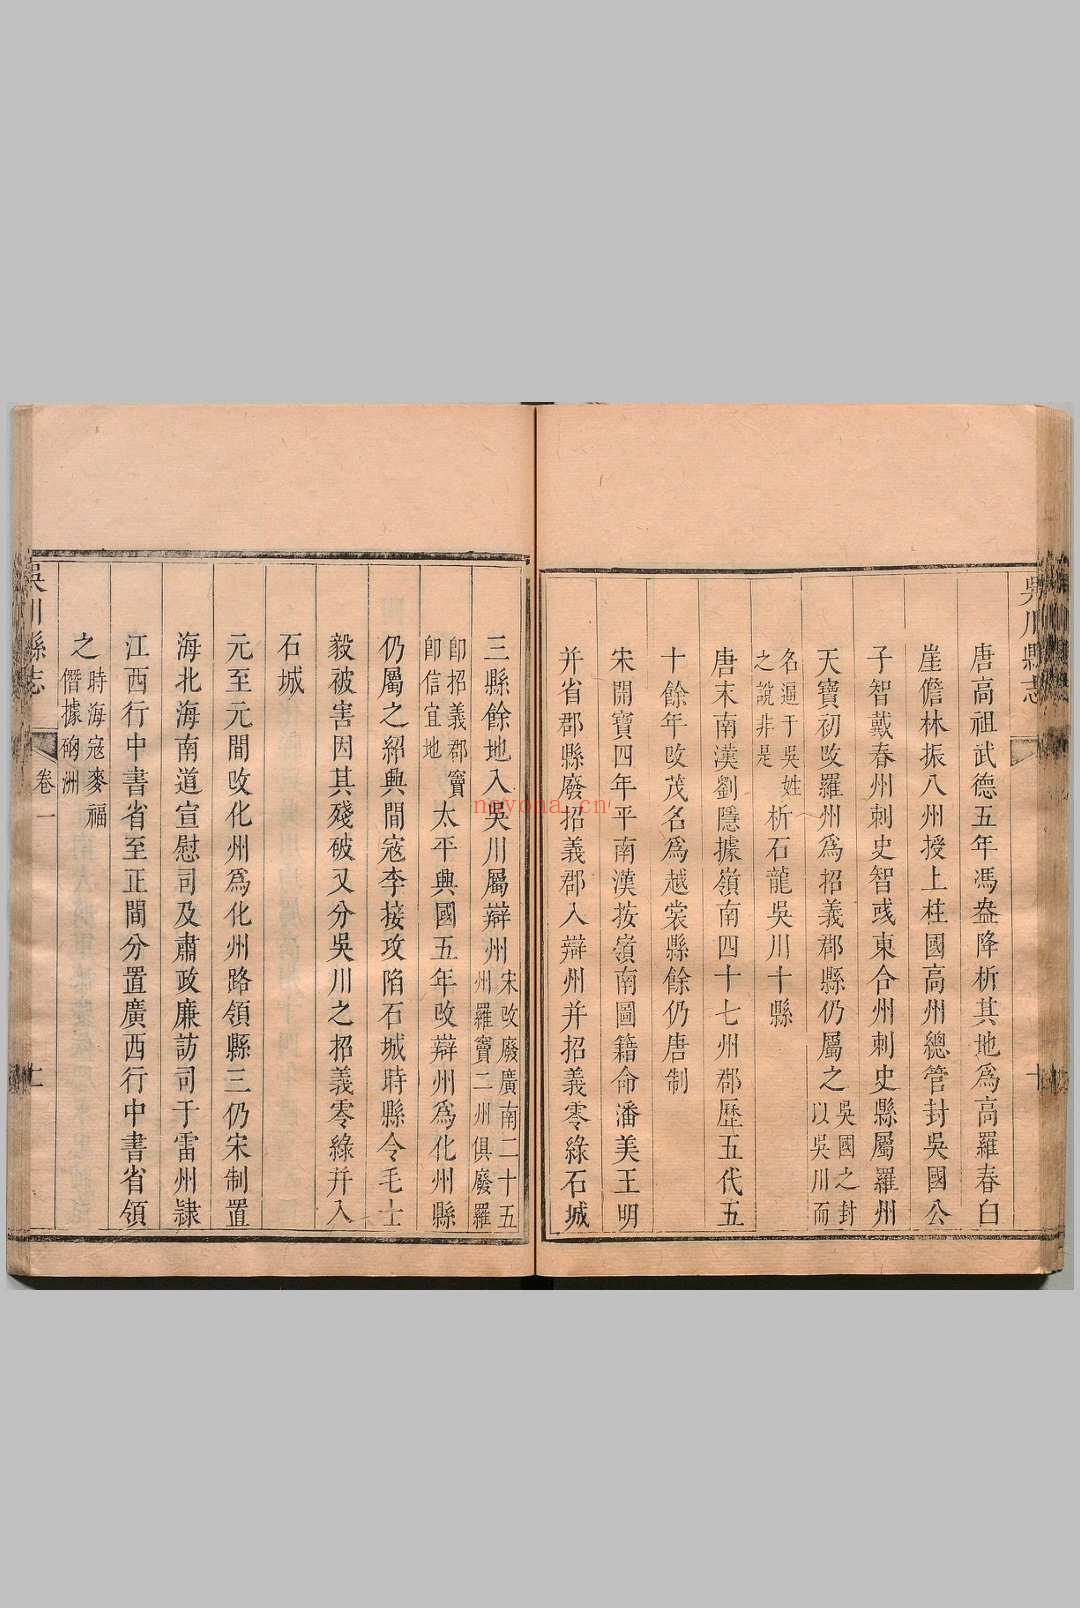 吳川縣志
唐高祖武德五年馮盎降析其地為高羅春白
崖儋林振八州授上柱國高州總管封吳國公
子智戴春州刺史智彧東合州刺史縣屬羅州
天寶初改羅州為招義郡縣仍屬之吳國之封以吳川而
名逼于吳姓之說非是析石龍吳川十縣
唐末南漢劉隱據嶺南四十七州郡歷五代五
十餘年改茂名為越裳縣餘仍唐制
宋開寶四年平南漢按嶺南圖籍命潘美王明
并省郡縣廢招義郡入辯州并招義零綠石城
三縣餘地入吳川屬辯州宋改廢廣南二十五州羅竇二州俱廢羅
卽招義郡竇卽信宜地太平興國五年改辯州為化州縣
仍屬之紹興間寇李接攻陷石城時縣令毛士
毅被害因其殘破又分吳川之招義零綠并入
石城
元至元間改化州為化州路領縣三仍宋制置
海北海南道宣慰司及肅政廉訪司于雷州隷
江西行中書省至正間分置廣西行中書省領
之時海寇麥福僭據硇洲
吳川縣志
卷一
npyona.cn